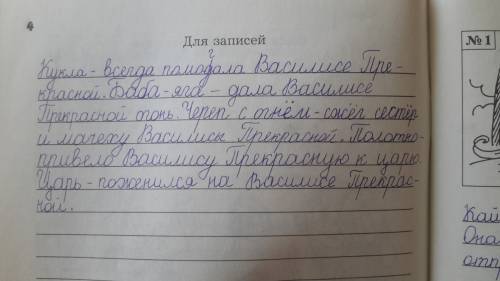 4
Для записей
Кукла - всегда помогала Василисе Пре-
красной. Баба-яга - дала Василисе
Прекрасной огонь. Череп с огнём - сжёг сестёр
и мачеху Василисы Прекрасной. Полотно-
привело Василису Прекрасную к царю.
Царь - поженился на Василисе Прекрас-
ной.
№1
Кай
Она
отпр